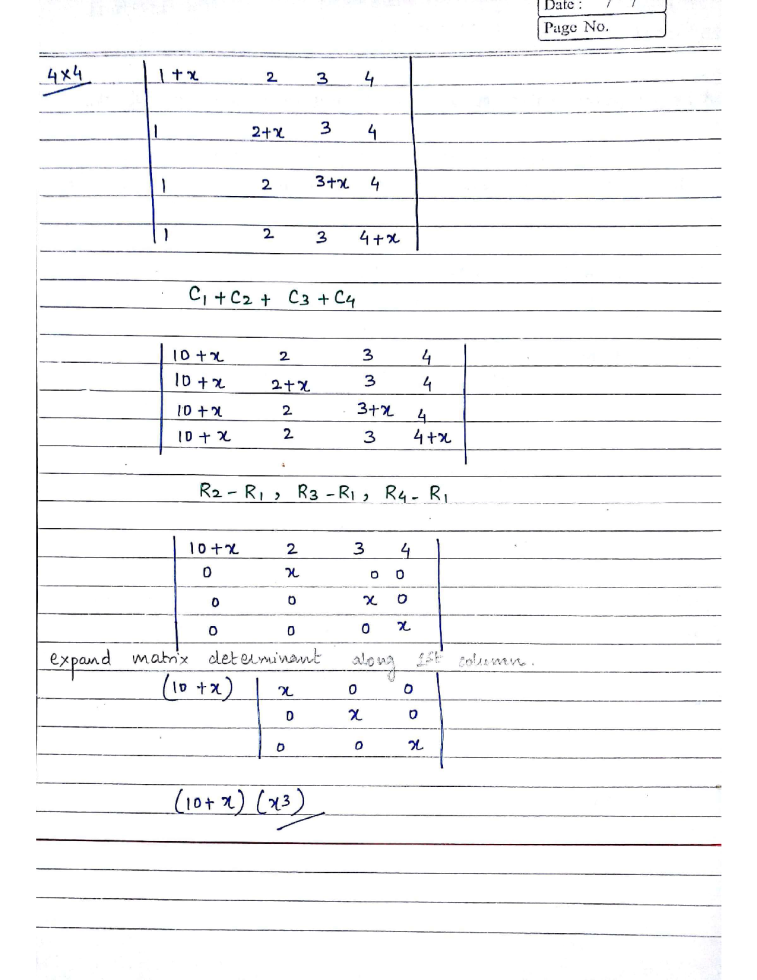 Date : / /
Page No.
4×4
1+x 2 3 4
1 2+x 3 4
1 2 3+x 4
1 2 3 4+x
C1 + C2 + C3 + C4
10+x 2 3 4
10+x 2+x 3 4
10+x 2 3+x 4
10+x 2 3 4+x
R2 - R1 , R3 - R1 , R4 - R1
10+x 2 3 4
0 x 0 0
0 0 x 0
0 0 0 x
expand matrix determinant along 1st column.
(10+x) x 0 0
0 x 0
0 0 x
(10+x) (x3)